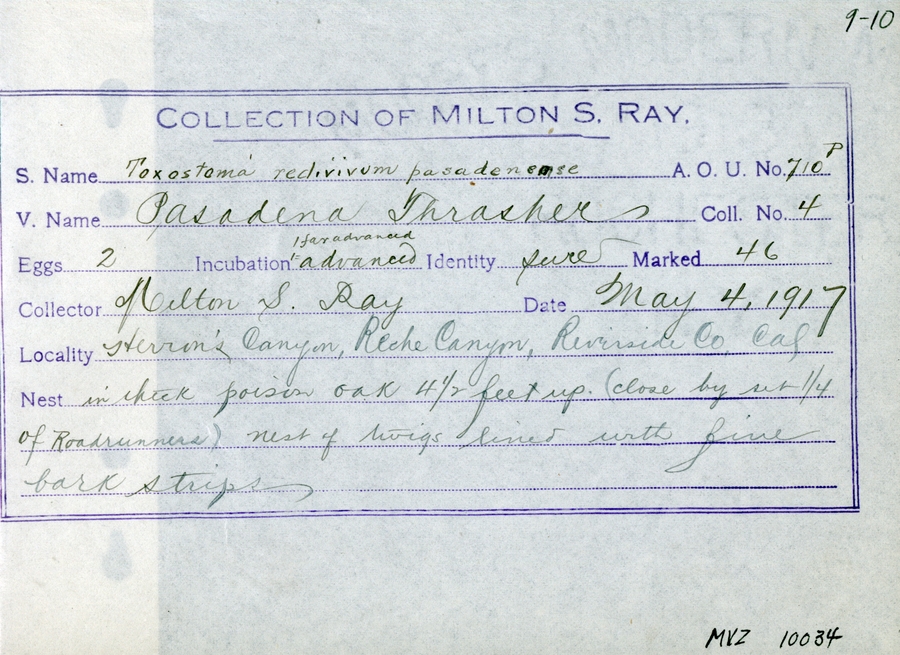 9-10
COLLECTION OF MILTON S. RAY.
S. Name Toxostoma redivivum pasadenense A. O. U. No. 710 P
V. Name Pasadena Thrasher Coll. No. 4
1 far advanced
Eggs 2 Incubation 1 advanced Identity sure Marked 46
Collector Milton S. Ray Date May 4, 1917
Locality Herron's Canyon, Reche Canyon, Riverside Co Cal
Nest in thick poison oak 4 1/2 feet up. (close by set 1/4
of Roadrunners) nest of twigs lined with fine
bark strips
MVZ 10034